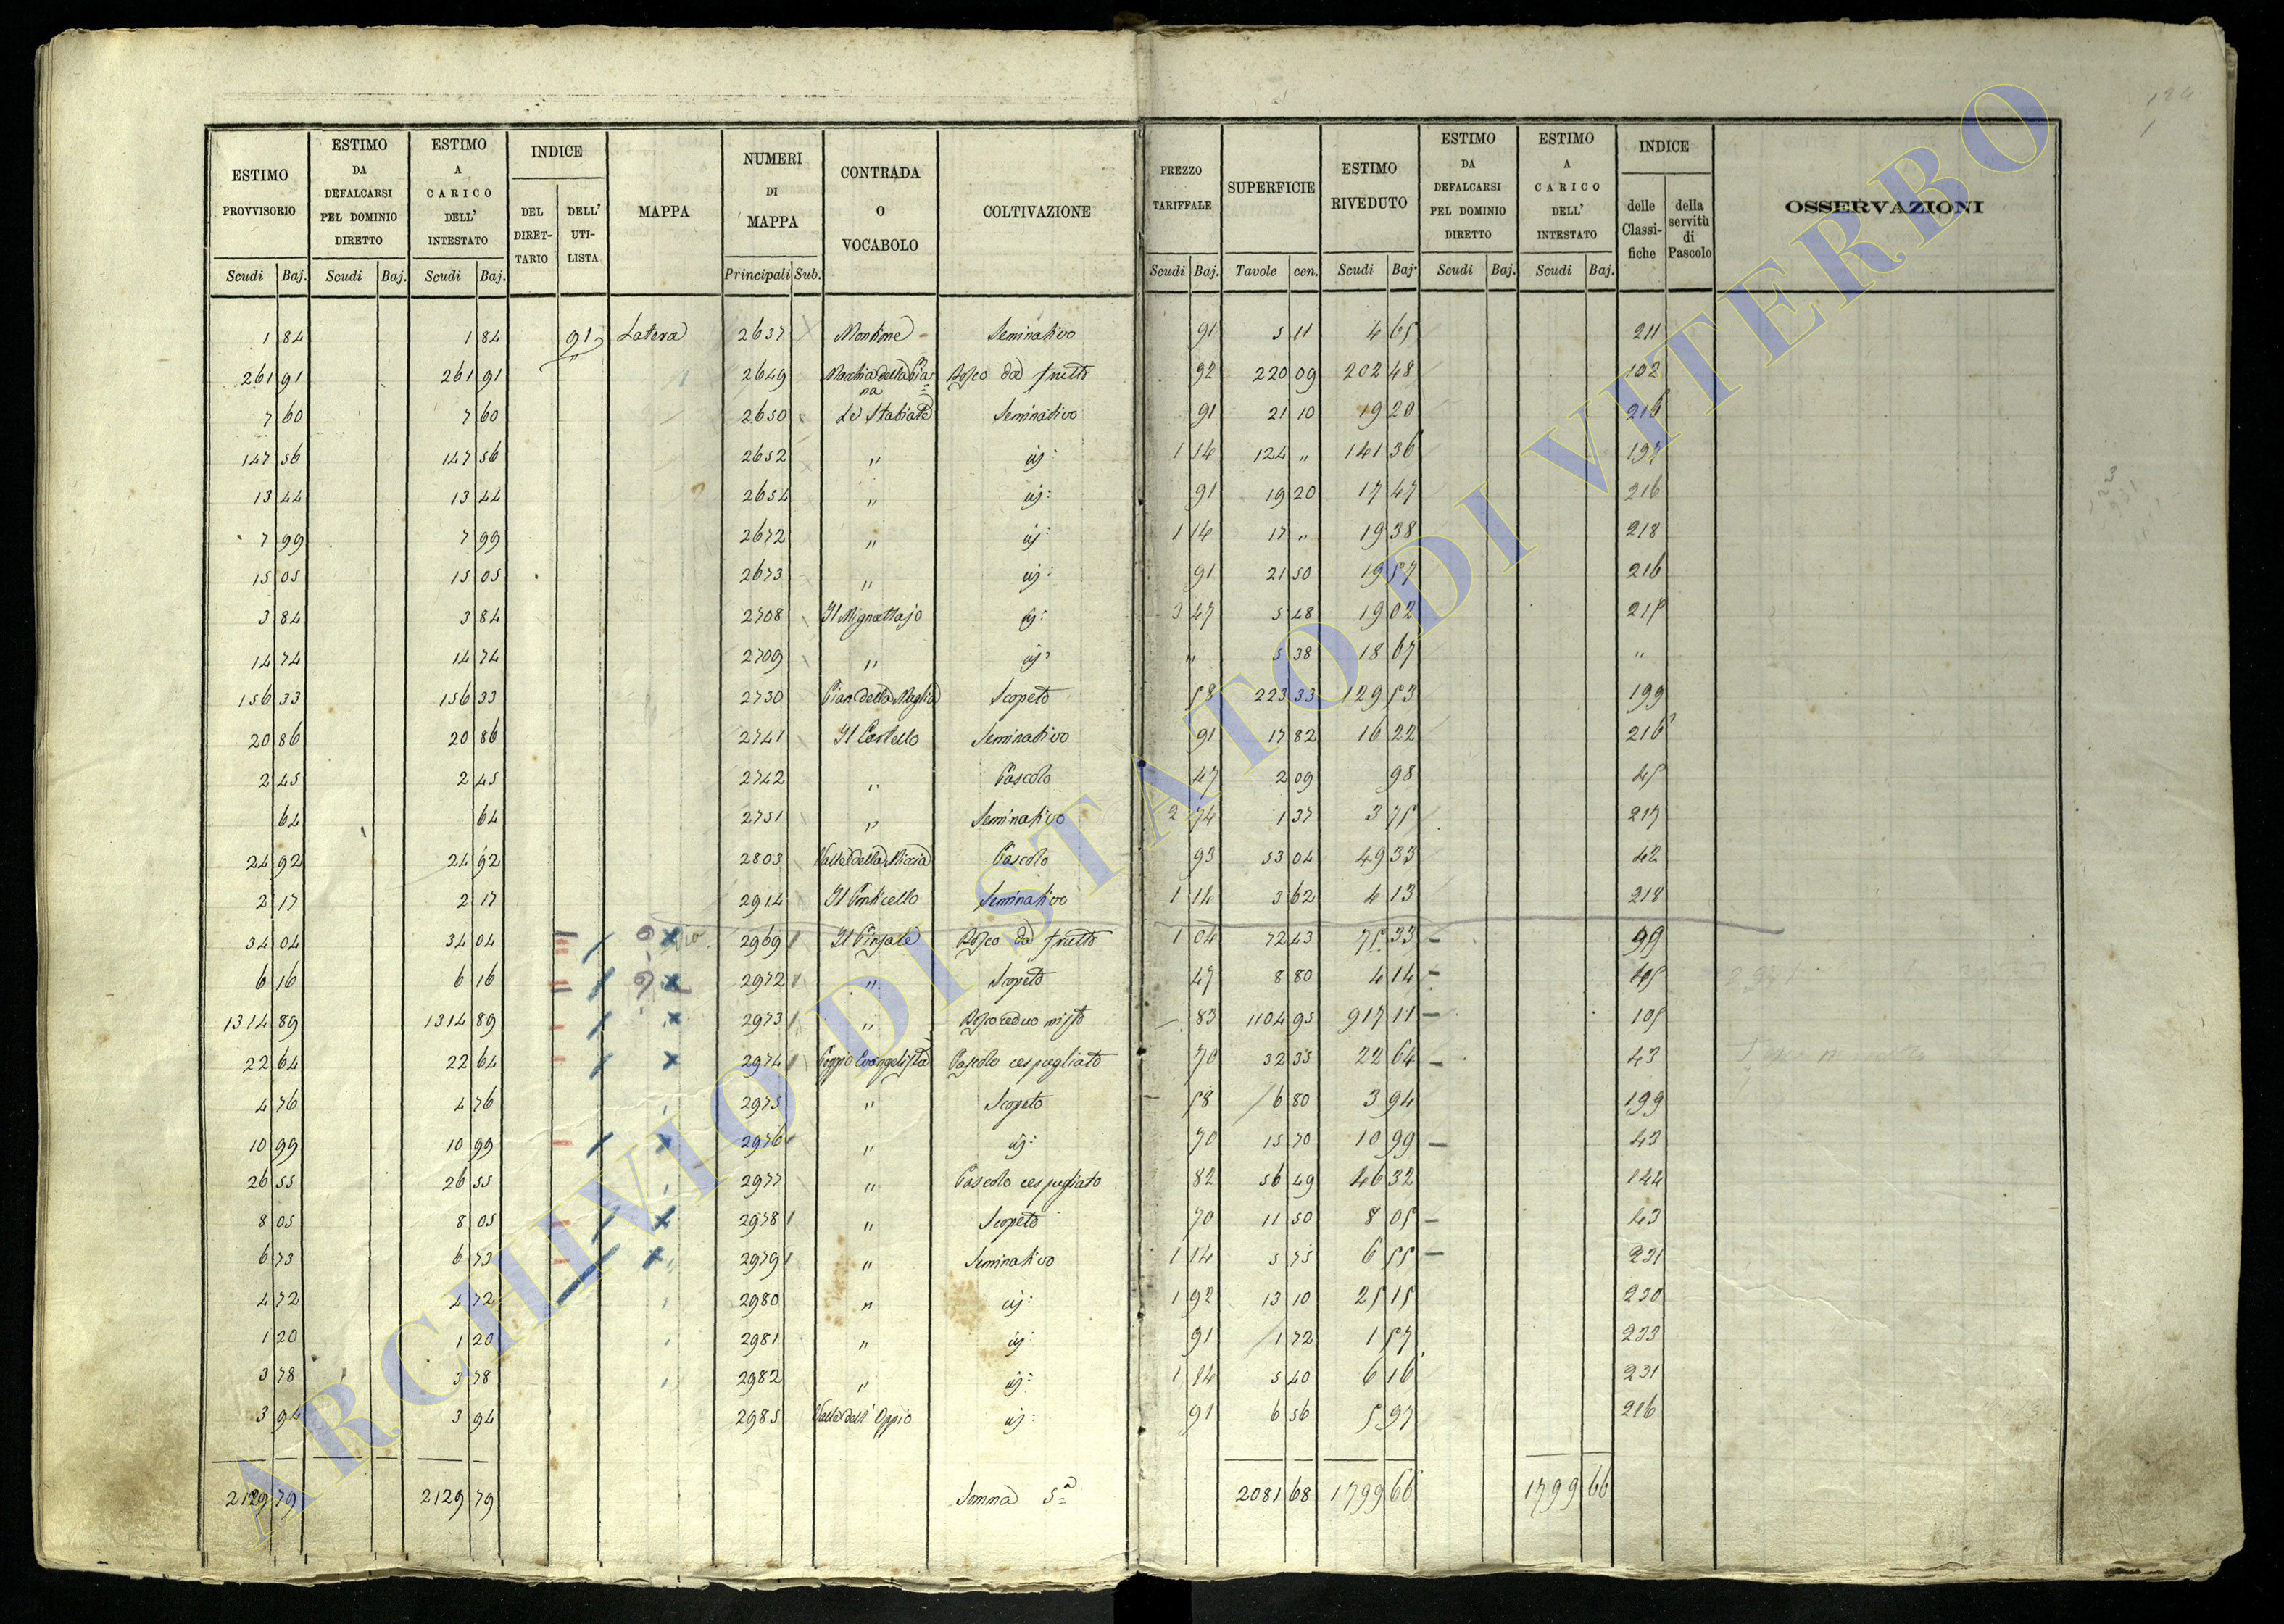 184
1
ESTIMO PROVVISORIO | ESTIMO DA DEFALCARSI PEL DOMINIO DIRETTO | ESTIMO A CARICO DELL' INTESTATO | INDICE | MAPPA | NUMERI DI MAPPA | CONTRADA O VOCABOLO | COLTIVAZIONE | PREZZO TARIFFALE | SUPERFICIE | ESTIMO RIVEDUTO | ESTIMO DA DEFALCARSI PEL DOMINIO DIRETTO | ESTIMO A CARICO DELL' INTESTATO | INDICE | OSSERVAZIONI
DEL DIRETTARIO | DELL' UTILISTA | delle Classifiche | della servitù di Pascolo
Scudi | Baj. | Scudi | Baj. | Scudi | Baj. | Principali | Sub. | Scudi | Baj. | Tavole | cen. | Scudi | Baj. | Scudi | Baj. | Scudi | Baj.
1 84 | 1 84 | 91 | Latera | 2637 | Montione | Seminativo | 91 | 5 11 | 4 65 | 211
261 91 | 261 91 | 2649 | Macchia della Piana | Bosco da frutto | 92 | 220 09 | 202 48 | 102
7 60 | 7 60 | 2650 | Le Stabiate | Seminativo | 91 | 21 10 | 19 20 | 216
147 56 | 147 56 | 2652 | " | id: | 1 14 | 124 " | 141 36 | 197
13 44 | 13 44 | 2654 | " | id: | 91 | 19 20 | 17 47 | 216
7 99 | 7 99 | 2672 | " | id: | 1 14 | 17 " | 19 38 | 218
15 05 | 15 05 | 2673 | " | id: | 91 | 21 50 | 19 57 | 216
3 84 | 3 84 | 2708 | Il Mignattajo | id: | 3 47 | 5 48 | 19 02 | 215
14 74 | 14 74 | 2709 | " | id: | " | 5 38 | 18 67 | "
156 33 | 156 33 | 2730 | Pian della Maglia | Scopeto | 58 | 223 33 | 129 53 | 199
20 86 | 20 86 | 2741 | Il Castello | Seminativo | 91 | 17 82 | 16 22 | 216
2 45 | 2 45 | 2742 | " | Pascolo | 47 | 2 09 | 98 | 45
64 | 64 | 2751 | " | Seminativo | 2 74 | 1 37 | 3 75 | 217
24 92 | 24 92 | 2803 | Valle della Miccia | Pascolo | 93 | 53 04 | 49 33 | 42
2 17 | 2 17 | 2914 | Il Ponticello | Seminativo | 1 14 | 3 62 | 4 13 | 218
34 04 | 34 04 | 2969 | Il Pinzale | Bosco da frutto | 1 04 | 72 43 | 75 33 | 99
6 16 | 6 16 | 2972 | " | Scopeto | 47 | 8 80 | 4 14 | 45
1314 89 | 1314 89 | 2973 | " | Bosco ceduo misto | 83 | 1104 95 | 917 11 | 105
22 64 | 22 64 | 2974 | Poggio Evangelista | Pascolo cespugliato | 70 | 32 35 | 22 64 | 43
4 76 | 4 76 | 2975 | " | Scopeto | 58 | 6 80 | 3 94 | 199
10 99 | 10 99 | 2976 | " | id: | 70 | 15 70 | 10 99 | 43
26 55 | 26 55 | 2977 | " | Pascolo cespugliato | 82 | 56 49 | 46 32 | 144
8 05 | 8 05 | 2978 | " | Scopeto | 70 | 11 50 | 8 05 | 43
6 73 | 6 73 | 2979 | " | Seminativo | 1 14 | 5 75 | 6 55 | 231
4 72 | 4 72 | 2980 | " | id: | 1 92 | 13 10 | 25 15 | 230
1 20 | 1 20 | 2981 | " | id: | 91 | 1 72 | 1 57 | 233
3 78 | 3 78 | 2982 | " | id: | 1 14 | 5 40 | 6 16 | 231
3 94 | 3 94 | 2985 | Valle dell' Oppio | id: | 91 | 6 56 | 5 97 | 216
2129 79 | 2129 79 | Somma Sa | 2081 68 | 1799 66 | 1799 66
ARCHIVIO DI STATO DI VITERBO